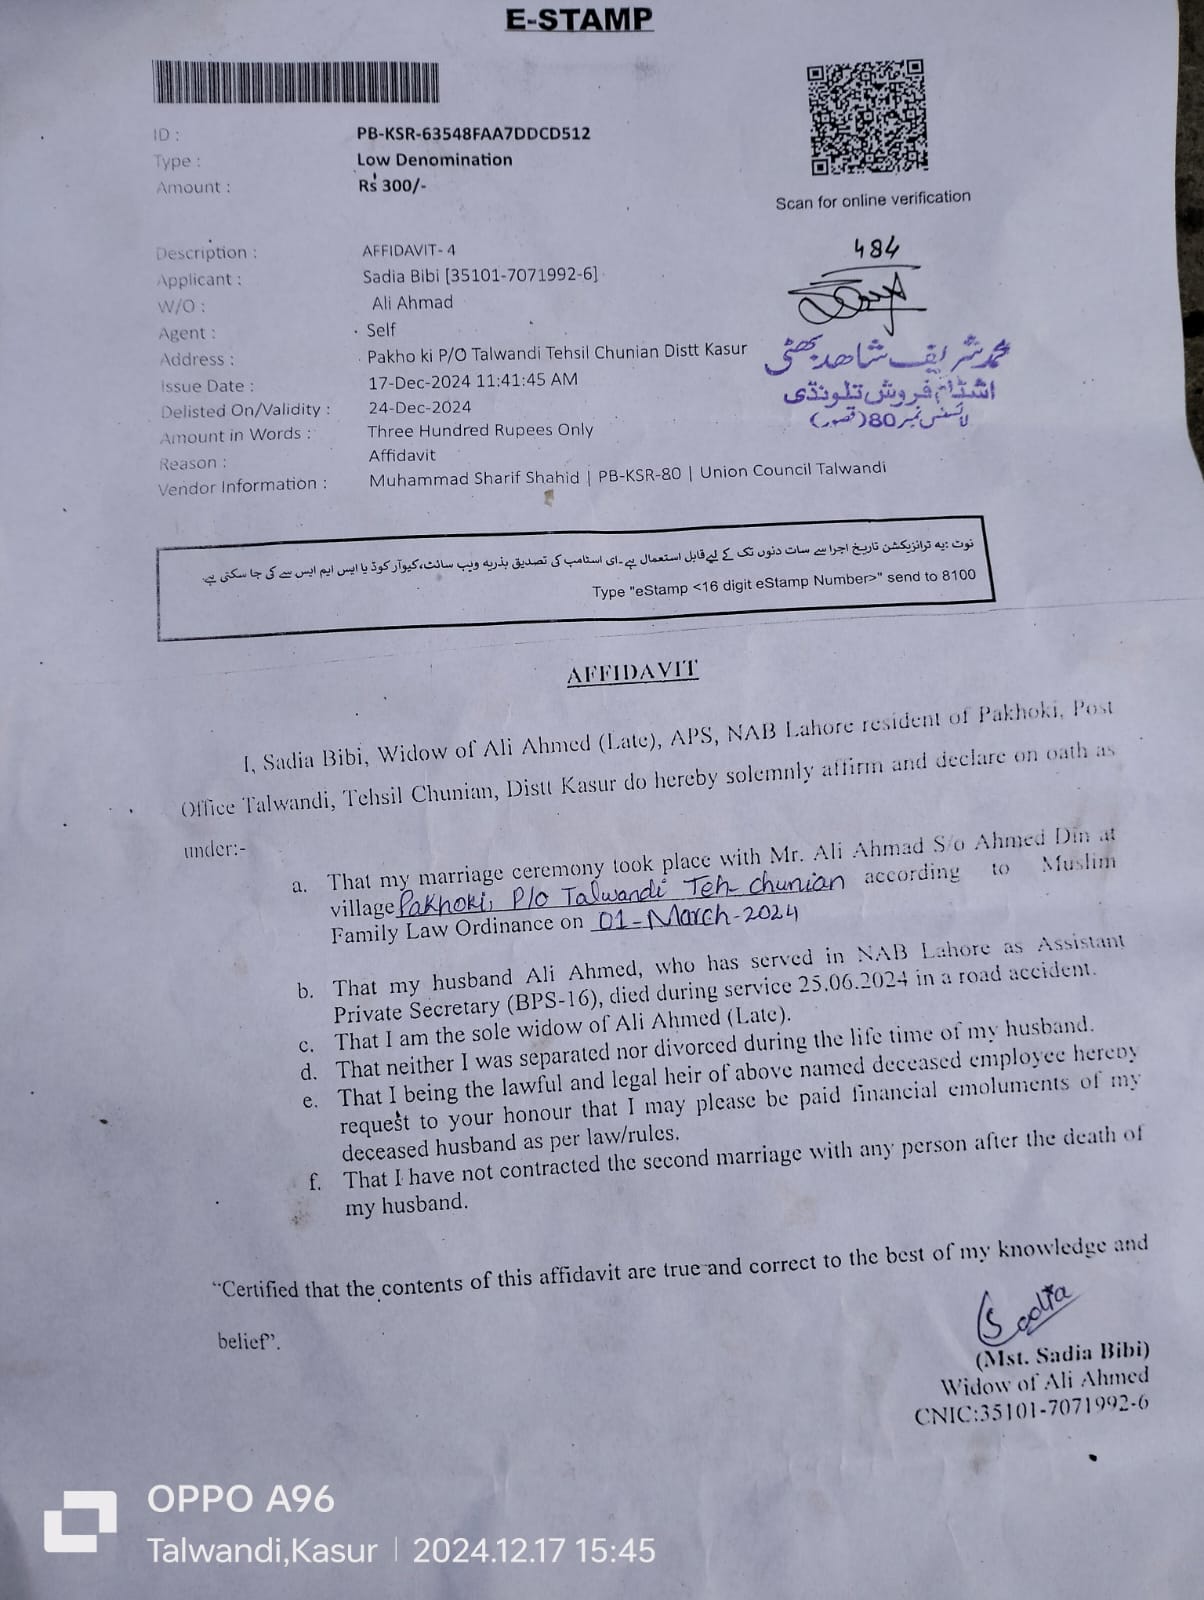 E-STAMP
ID : PB-KSR-63548FAA7DDCD512
Type : Low Denomination
Amount : Rs 300/-
Scan for online verification
Description : AFFIDAVIT- 4
Applicant : Sadia Bibi [35101-7071992-6]
W/O : Ali Ahmad
Agent : Self
Address : Pakho ki P/O Talwandi Tehsil Chunian Distt Kasur
Issue Date : 17-Dec-2024 11:41:45 AM
Delisted On/Validity : 24-Dec-2024
Amount in Words : Three Hundred Rupees Only
Reason : Affidavit
Vendor Information : Muhammad Sharif Shahid | PB-KSR-80 | Union Council Talwandi
484
محمد شریف شاھد بھٹی
اشٹام فروش تلونڈی
لائسنس نمبر 80 (قصور)
نوٹ :یہ ٹرانزیکشن تاریخ اجرا سے سات دنوں تک کے لیے قابل استعمال ہے۔ای اسٹامپ کی تصدیق بذریعہ ویب سائٹ،کیوآر کوڈ یا ایس ایم ایس سے کی جا سکتی ہے۔
Type "eStamp <16 digit eStamp Number>" send to 8100
AFFIDAVIT
I, Sadia Bibi, Widow of Ali Ahmed (Late), APS, NAB Lahore resident of Pakhoki, Post
Office Talwandi, Tehsil Chunian, Distt Kasur do hereby solemnly affirm and declare on oath as
under:-
a. That my marriage ceremony took place with Mr. Ali Ahmad S/o Ahmed Din at
village Pakhoki, P/o Talwandi Teh- Chunian according to Muslim
Family Law Ordinance on 01-March-2024
b. That my husband Ali Ahmed, who has served in NAB Lahore as Assistant
Private Secretary (BPS-16), died during service 25.06.2024 in a road accident.
c. That I am the sole widow of Ali Ahmed (Late).
d. That neither I was separated nor divorced during the life time of my husband.
e. That I being the lawful and legal heir of above named deceased employee hereby
request to your honour that I may please be paid financial emoluments of my
deceased husband as per law/rules.
f. That I have not contracted the second marriage with any person after the death of
my husband.
"Certified that the contents of this affidavit are true and correct to the best of my knowledge and
belief".
Sadia
(Mst. Sadia Bibi)
Widow of Ali Ahmed
CNIC:35101-7071992-6
OPPO A96
Talwandi,Kasur | 2024.12.17 15:45